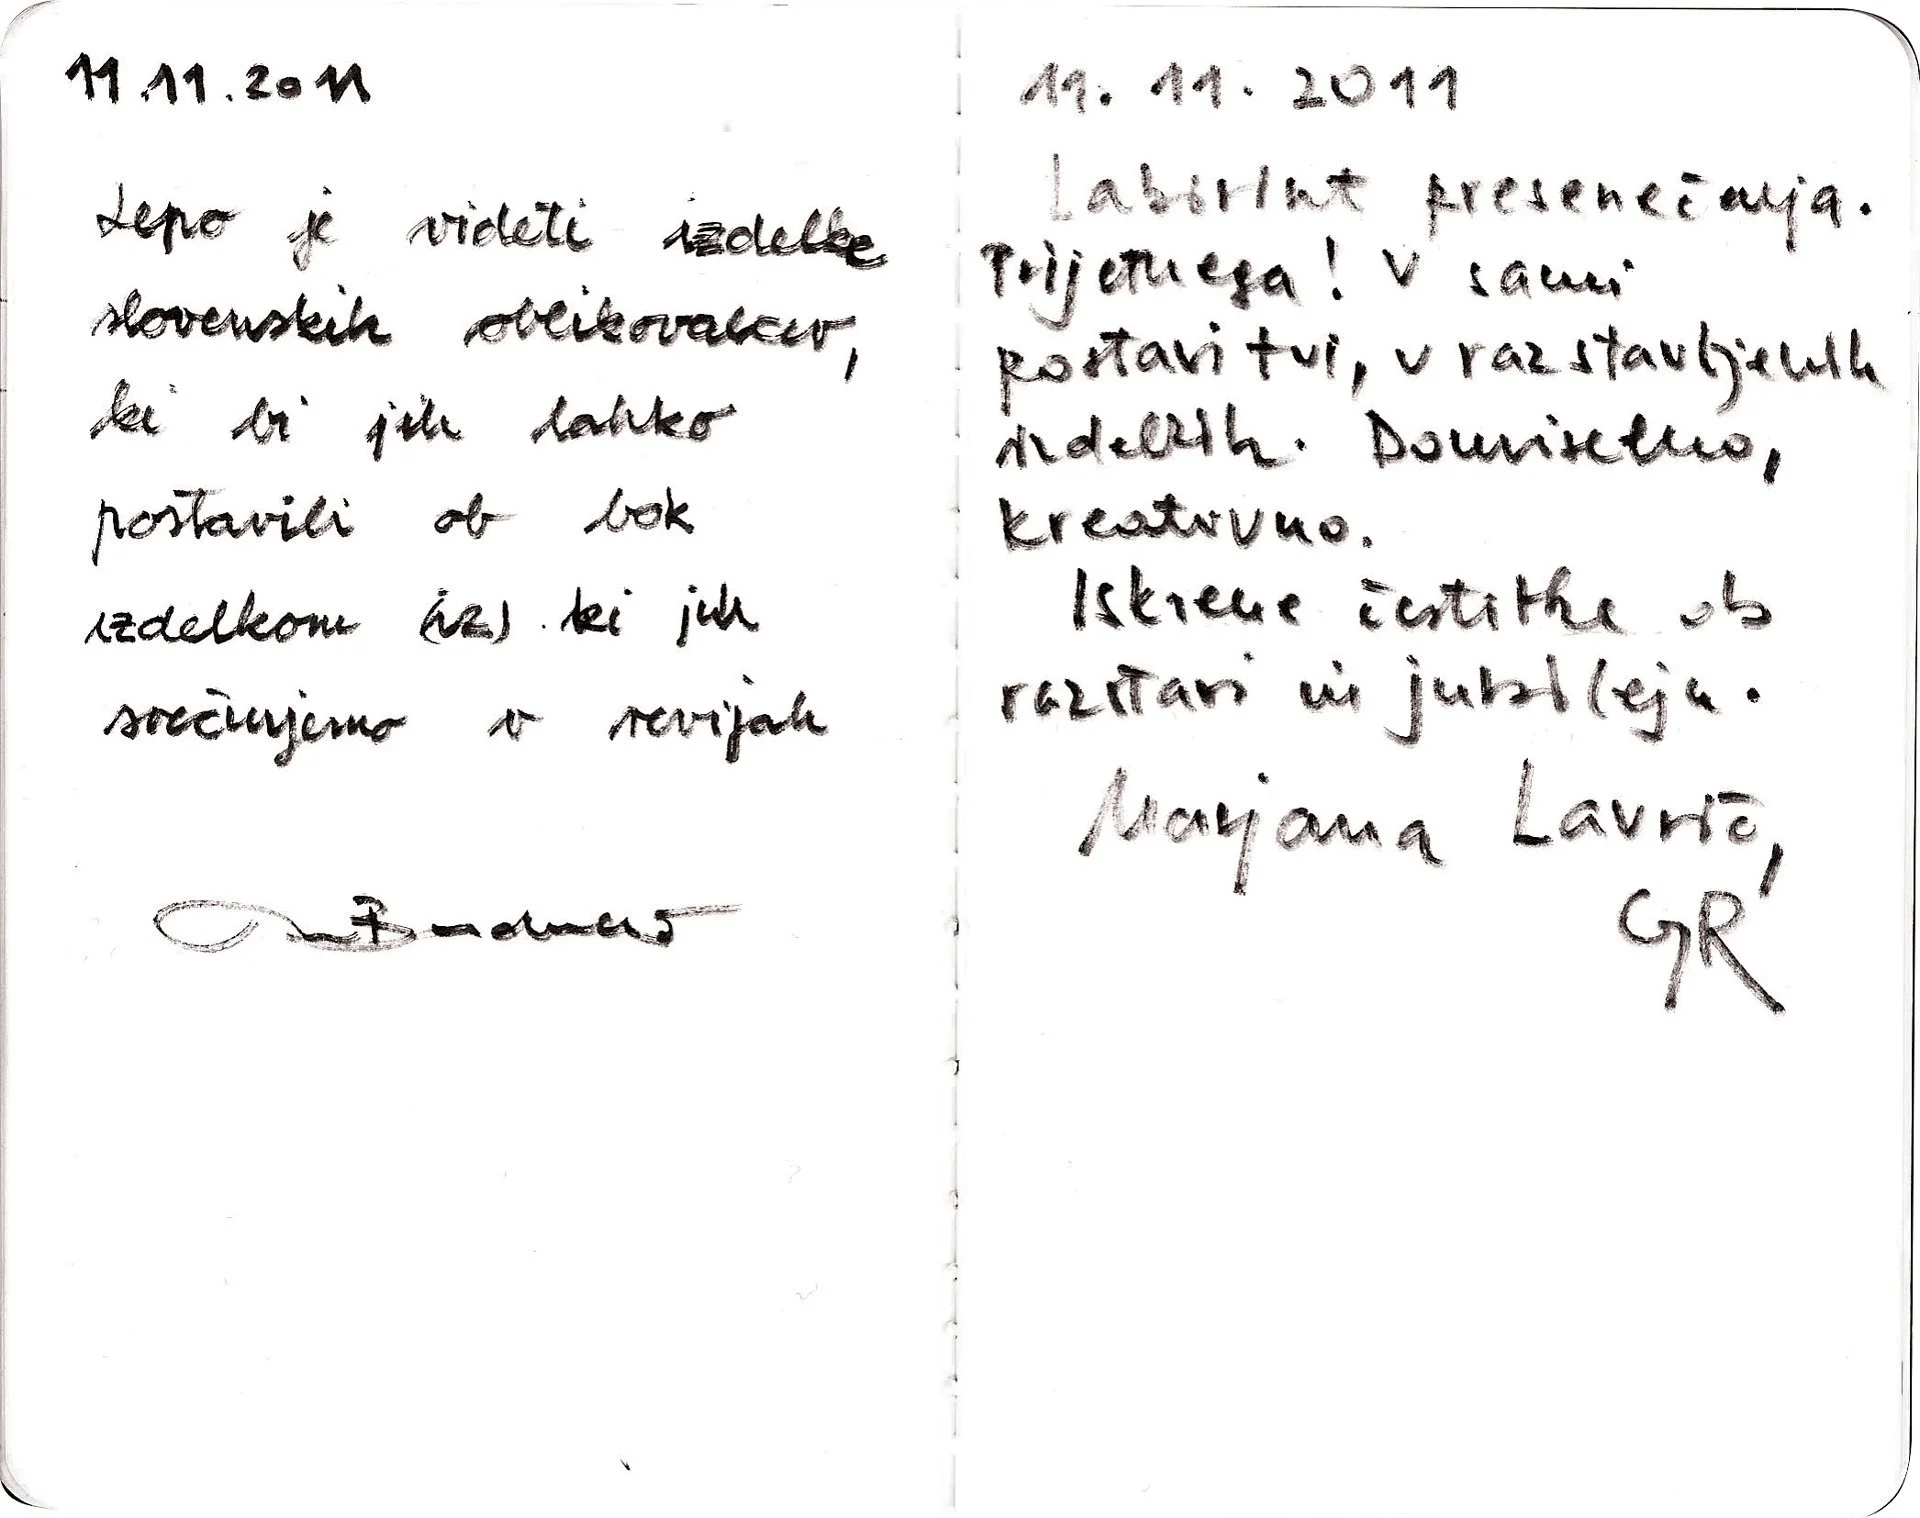 11.11.2011
Lepo je videti izdelke
slovenskih oblikovalcev,
ki bi jih lahko
postavili ob bok
izdelkom (iz) ki jih
srečujemo v revijah
11. 11. 2011
Labirint presenečenja.
Prijetnega! V sami
postavitvi, v razstavljenih
izdelkih. Domiselno,
kreativno.
Iskrene čestitke ob
razstavi in jubileju.
Marjana Lavrič,
GR